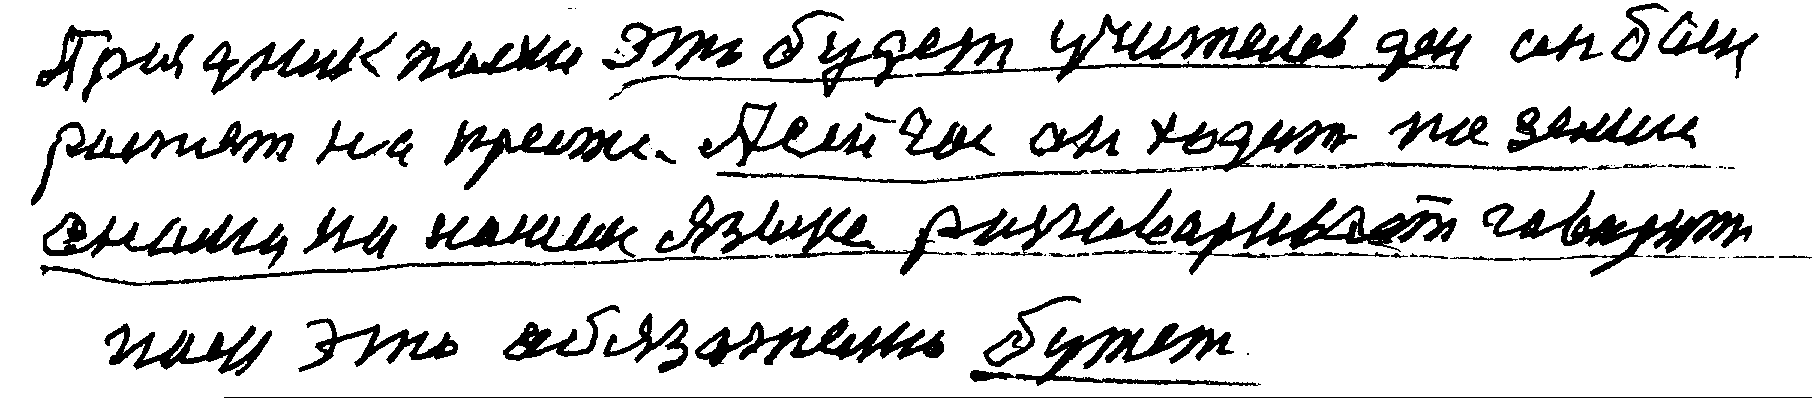 Праздник пасха это будет учителев ден он был
распят на кресте. Сейчас он ходит по земли
снами на нашем языке разговаривает говорит
нам это обязательно будет